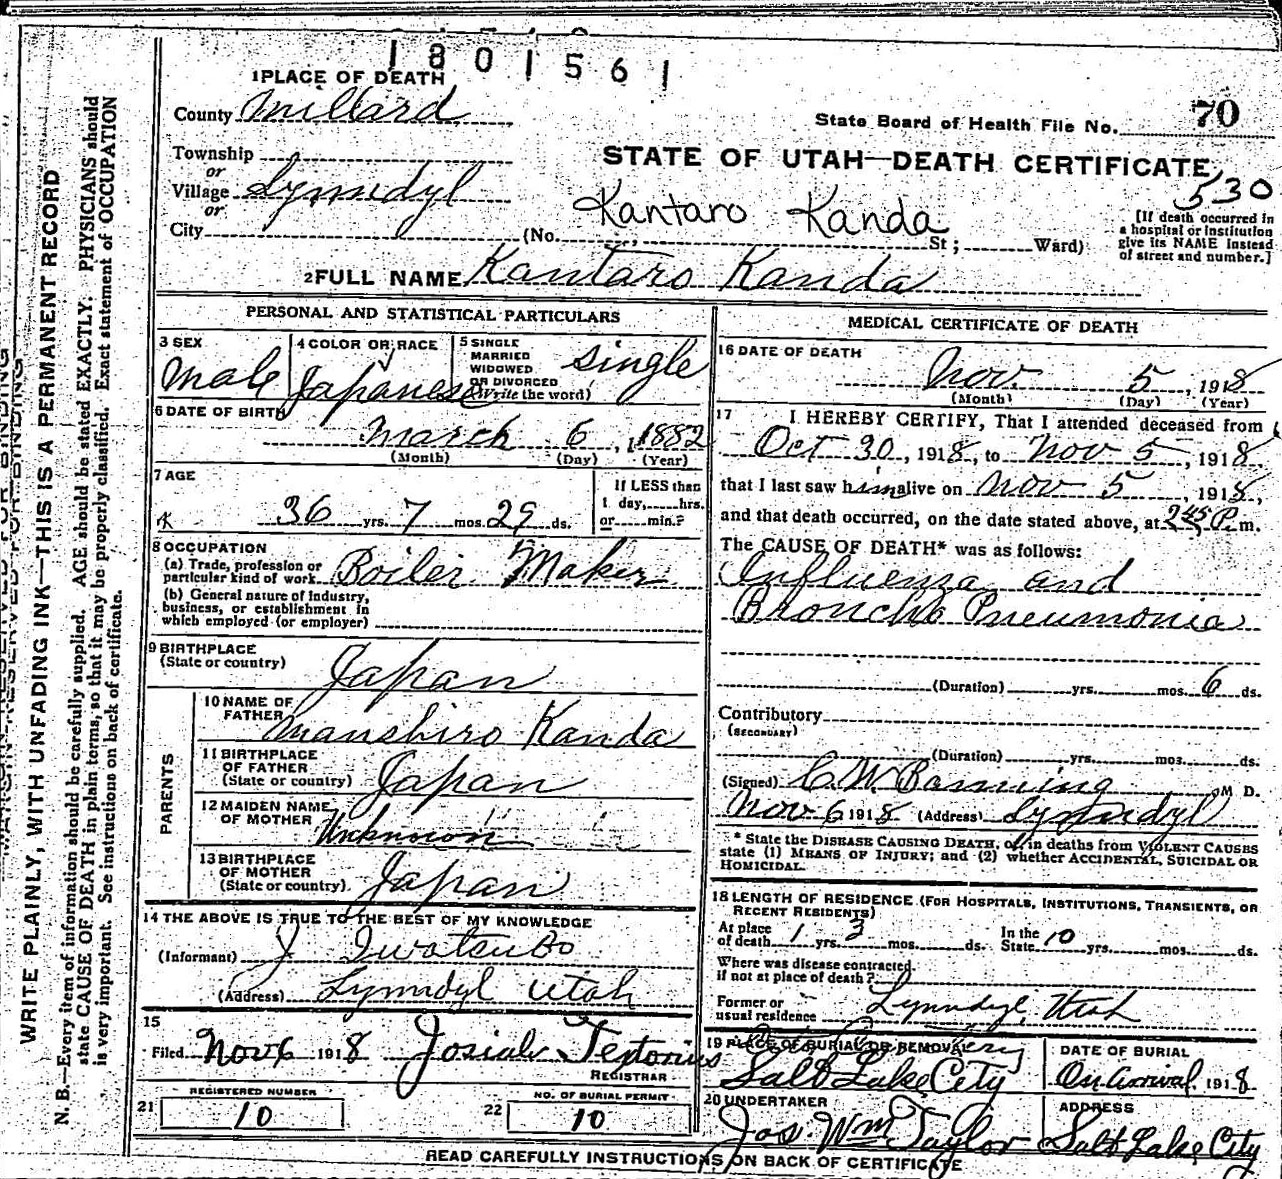 1801561
1 PLACE OF DEATH
County Millard
State Board of Health File No. 70
Township
or
Village Lynndyl
or
City
STATE OF UTAH—DEATH CERTIFICATE
530
Kantaro Kanda
(No. St; Ward)
[If death occurred in
a hospital or institution
give its NAME instead
of street and number.]
2 FULL NAME Kantaro Kanda
PERSONAL AND STATISTICAL PARTICULARS
3 SEX
Male
4 COLOR OR RACE
Japanese
5 SINGLE
MARRIED
WIDOWED
OR DIVORCED
(Write the word)
single
6 DATE OF BIRTH
March 6, 1882
(Month) (Day) (Year)
7 AGE
36 yrs. 7 mos. 29 ds.
If LESS than
1 day, hrs.
or min.?
8 OCCUPATION
(a) Trade, profession or
particular kind of work
Boiler Maker
(b) General nature of industry,
business, or establishment in
which employed (or employer)
9 BIRTHPLACE
(State or country)
Japan
PARENTS
10 NAME OF
FATHER
Manshiro Kanda
11 BIRTHPLACE
OF FATHER
(State or country)
Japan
12 MAIDEN NAME
OF MOTHER
Unknown
13 BIRTHPLACE
OF MOTHER
(State or country)
Japan
14 THE ABOVE IS TRUE TO THE BEST OF MY KNOWLEDGE
(Informant) J. Iwatsubo
(Address) Lynndyl Utah
15
Filed Nov 6 1918 Josiah Tertorius
REGISTRAR
REGISTERED NUMBER
21 10
NO. OF BURIAL PERMIT
22 10
MEDICAL CERTIFICATE OF DEATH
16 DATE OF DEATH
Nov. 5, 1918
(Month) (Day) (Year)
17 I HEREBY CERTIFY, That I attended deceased from
Oct 30, 1918, to Nov 5, 1918,
that I last saw him alive on Nov 5, 1918,
and that death occurred, on the date stated above, at 2 45 P. m.
The CAUSE OF DEATH* was as follows:
Influenza and
Broncho Pneumonia
(Duration) yrs. mos. 6 ds.
Contributory
(SECONDARY)
(Duration) yrs. mos. ds.
(Signed) C. W. Banning M D.
Nov 6 1918 (Address) Lynndyl
* State the DISEASE CAUSING DEATH, or, in deaths from VIOLENT CAUSES
state (1) MEANS OF INJURY; and (2) whether ACCIDENTAL, SUICIDAL OR
HOMICIDAL.
18 LENGTH OF RESIDENCE (FOR HOSPITALS, INSTITUTIONS, TRANSIENTS, OR
RECENT RESIDENTS)
At place
of death 1 yrs. 3 mos. ds.
In the
State 10 yrs. mos. ds.
Where was disease contracted,
if not at place of death?
Former or
usual residence Lynndyl, Utah
19 PLACE OF BURIAL OR REMOVAL
City Cemetery
Salt Lake City
DATE OF BURIAL
On arrival, 1918
20 UNDERTAKER
Jos. Wm Taylor
ADDRESS
Salt Lake City
READ CAREFULLY INSTRUCTIONS ON BACK OF CERTIFICATE
MARGIN RESERVED FOR BINDING
WRITE PLAINLY, WITH UNFADING INK—THIS IS A PERMANENT RECORD
N. B.—Every item of information should be carefully supplied. AGE should be stated EXACTLY. PHYSICIANS should
state CAUSE OF DEATH in plain terms, so that it may be properly classified. Exact statement of OCCUPATION
is very important. See instructions on back of certificate.